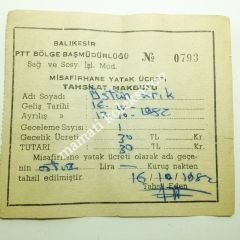 BALIKESİR
PTT BÖLGE BAŞMÜDÜRLÜĞÜ № 0793
Sağ ve Sosy. İşl. Müd.
MİSAFİRHANE YATAK ÜCRETİ
TAHSİLAT MAKBUZU
Adı Soyadı
Geliş Tarihi 16.10.
Ayrılış 17.10.1982
Geceleme Sayısı: 1
Geceleme Ücreti 30 TL Kr.
TUTARI 30 TL Kr.
Misafirhane yatak ücreti olarak adı geçe-
nin otuz Lira Kuruş nakten
tahsil edilmiştir. 16/10/1982
Tahsil Eden